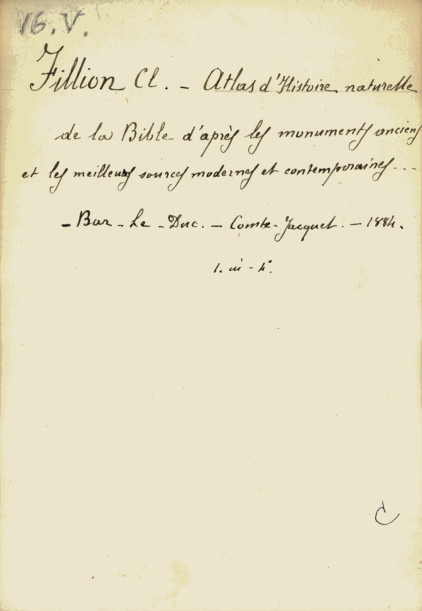 16.V.
Fillion Cl. - Atlas d'Histoire naturelle
de la Bible d'après les monuments anciens
et les meilleurs sources modernes et contemporaines...
- Bar-le-Duc. - Comte-Jacquet. - 1884.
1. in-4°.
C